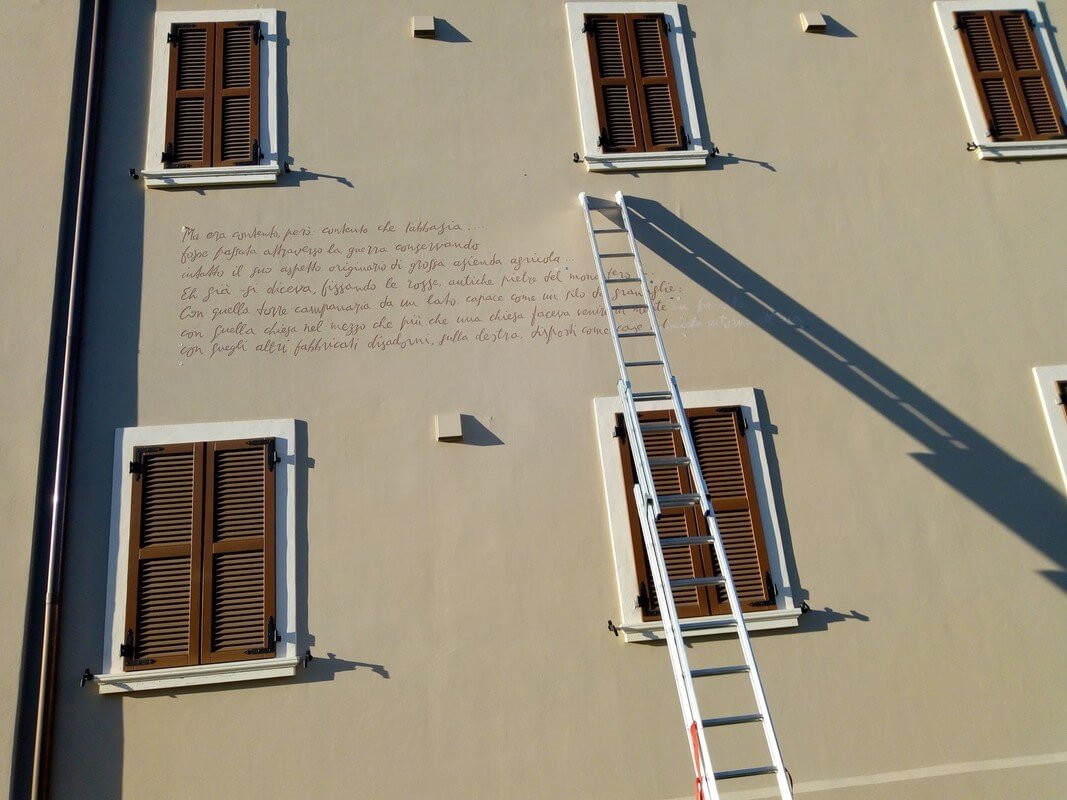 Ma era contento, però: contento che l'abbazia ....
fosse passata attraverso la guerra conservando
intatto il suo aspetto originario di grossa azienda agricola ...
Eh già - si diceva, fissando le rosse, antiche pietre del monastero ...
Con quella torre campanaria da un lato, capace come un silo di granaglie;
con quella chiesa nel mezzo che più che una chiesa faceva venire in mente un
con quegli altri fabbricati disadorni, sulla destra, disposti come case